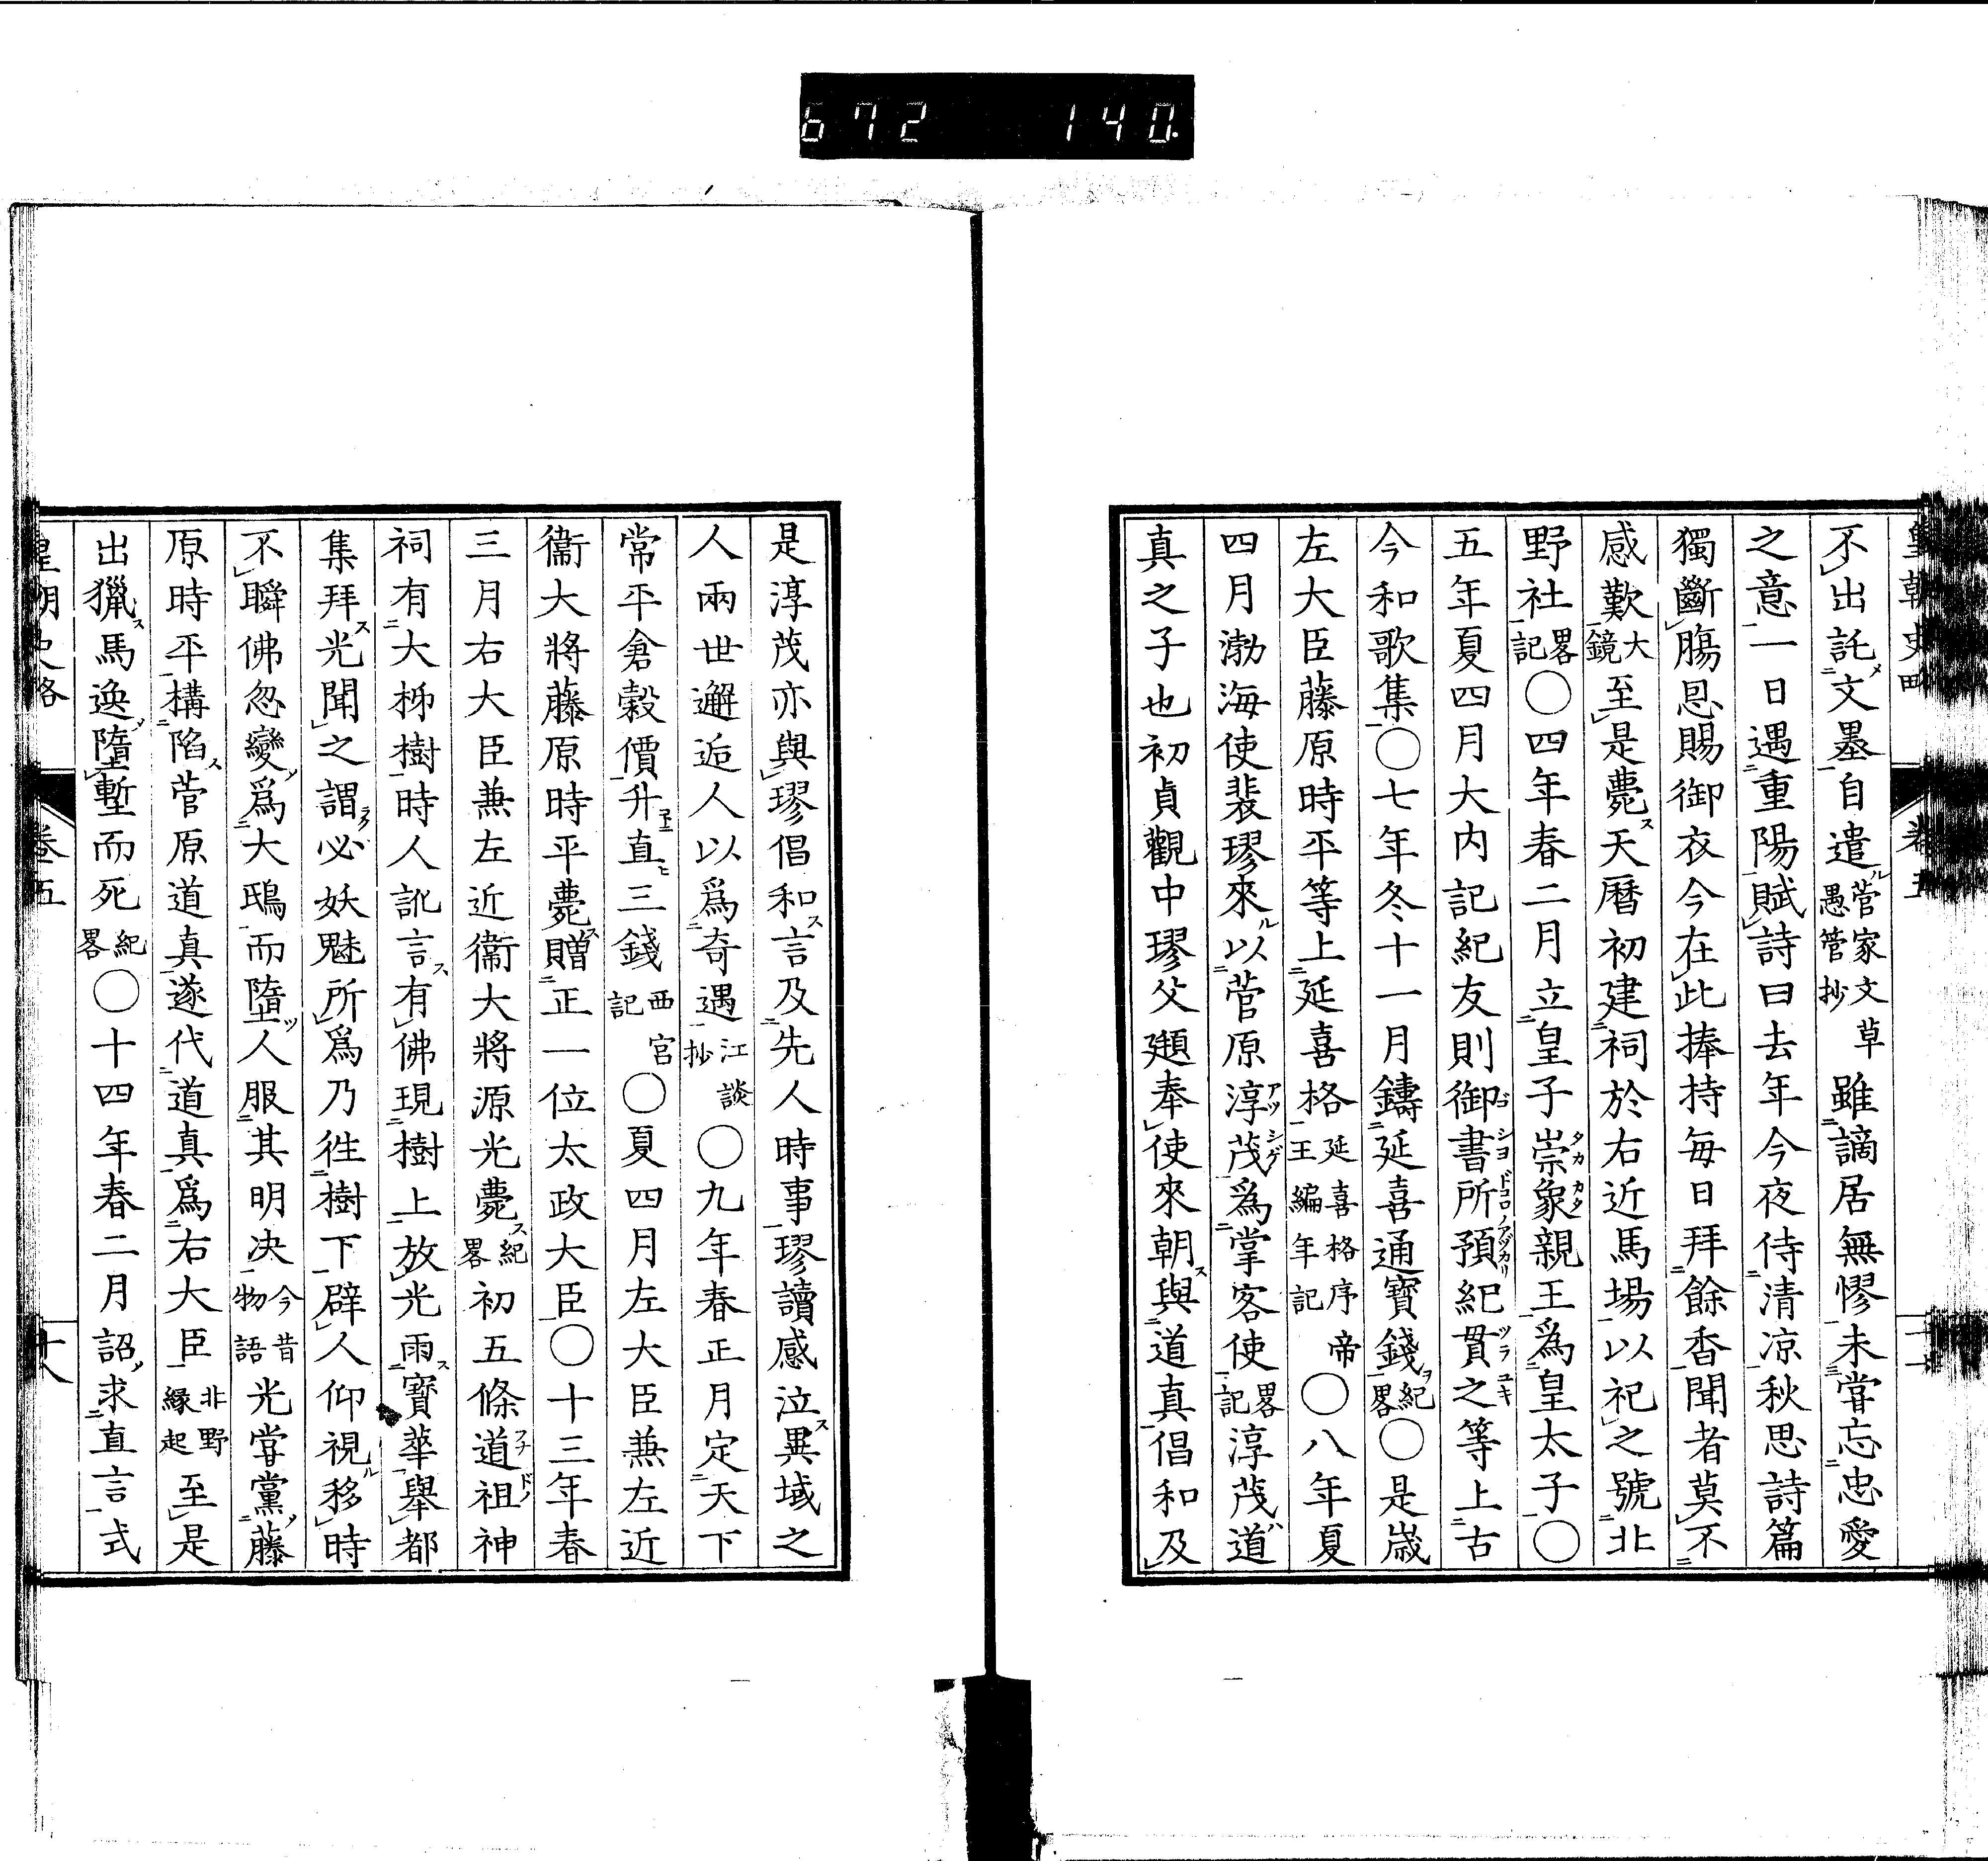 672 140.
皇朝史略 卷五
不出託文墨自遣菅家文草愚管抄雖謫居無憀未甞忘忠愛
之意一日遇重陽賦詩曰去年今夜侍清凉秋思詩篇
獨斷膓恩賜御衣今在此捧持毎日拜餘香聞者莫不
感歎大鏡至是薨天曆初建祠於右近馬場以祀之號北
野社畧記〇四年春二月立皇子崇象親王爲皇太子〇
五年夏四月大内記紀友則御書所預紀貫之等上古
今和歌集〇七年冬十一月鑄延喜通寶錢紀畧〇是嵗
左大臣藤原時平等上延喜格延喜格序帝王編年記〇八年夏
四月渤海使裴璆來以菅原淳茂爲掌客使畧記淳茂道
真之子也初貞觀中璆父頲奉使來朝與道真倡和及
是淳茂亦與璆倡和言及先人時事璆讀感泣異域之
人兩世邂逅人以爲奇遇江談抄〇九年春正月定天下
常平倉穀價升直三錢西宮記〇夏四月左大臣兼左近
衞大將藤原時平薨贈正一位太政大臣〇十三年春
三月右大臣兼左近衞大將源光薨紀畧初五條道祖神
祠有大柹樹時人訛言有佛現樹上放光雨寶華舉都
集拜光聞之謂必妖魅所爲乃徃樹下辟人仰視移時
不瞬佛忽變爲大鴟而墮人服其明决今昔物語光甞黨藤
原時平構陷菅原道真遂代道真爲右大臣北野縁起至是
出獵馬逸墮塹而死紀畧〇十四年春二月詔求直言式
皇朝史略 卷五 十八